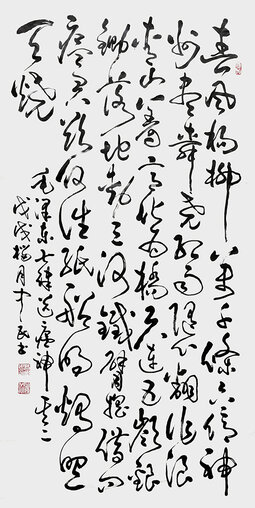 春风杨柳万千条六亿神
州尽舜尧红雨随心翻作浪
青山着意化为桥天连五岭银
锄落地动三河铁臂摇借问
瘟君欲何往纸船明烛照
天烧
毛泽东七律送瘟神其二
戊戌桜月